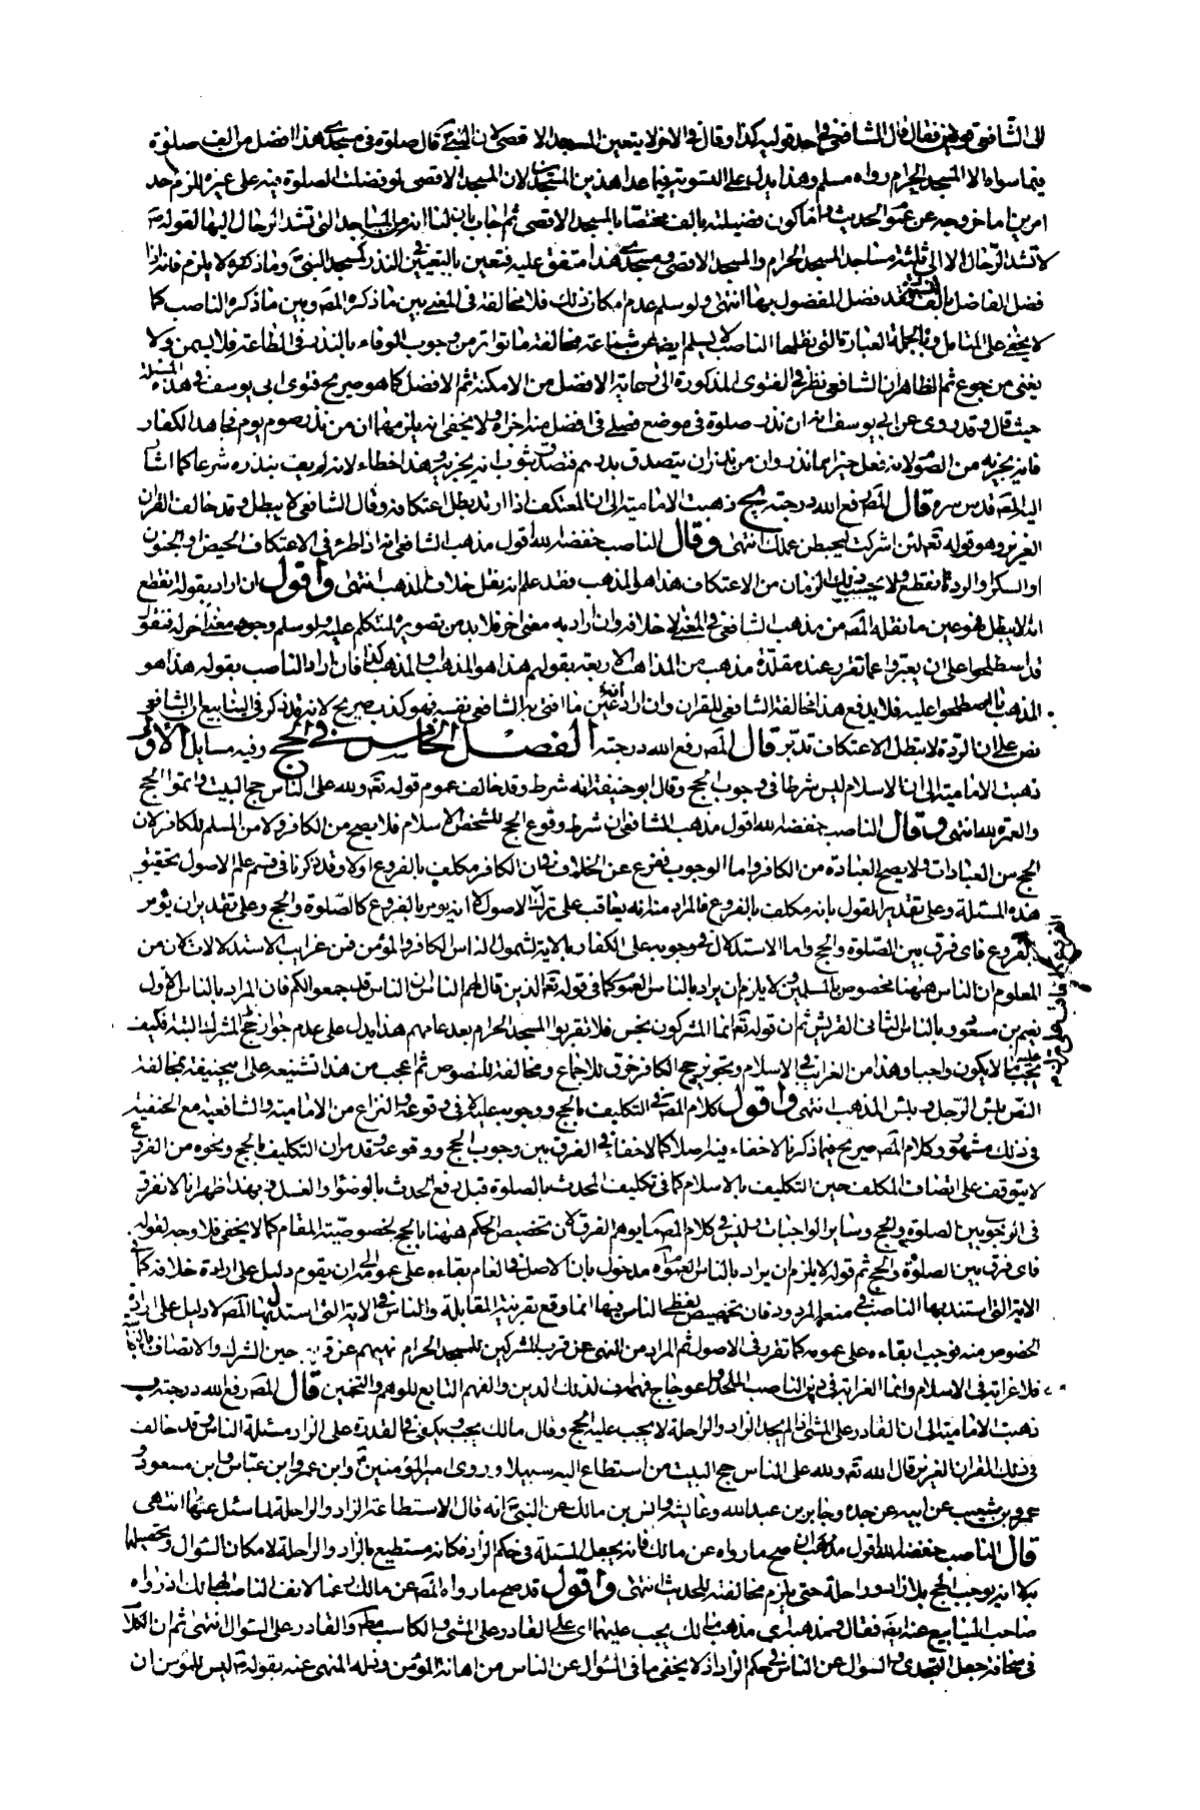 الى الشافعى قولين فقال قال الشافعى فى احد قوليه كذا وقال فى الاخر لا يتعين المسجد الاقصى لان النبى ص قال صلوة فى مسجدى هذا افضل من الف صلوة
فيما سواه الا المسجد الحرام رواه مسلم وهذا يدل على التسوية فيما عدا هذين المسجدين لان المسجد الاقصى لو فضلت الصلوة فيه على غيره للزم احد
امرين اما خروجه عن عموم الحديث واما كون فضيلته بالف مختصا بالمسجد الاقصى ثم اجاب بان لنا انه من المساجد التى تشد الرحال اليها لقوله ص
لا تشد الرحال الا الى ثلثة مساجد المسجد الحرام والمسجد الاقصى ومسجدى هذا متفق عليه فتعين بالتعيين فى النذر كمسجد النبى ص وما ذكره لا يلزم فانه اذا
فضل الفاضل بالف فقد فضل المفضول بها انتهى ولو سلم عدم امكان ذلك فلا مخالفة فى المعنى بين ما ذكره المص وبين ما ذكره الناصب كما
لا يخفى على المتامل وبالجملة العبارة التى نقلها الناصب لا يسلم ايضا عن شناعة مخالفة ما تواتر من وجوب الوفاء بالنذر فى الطاعة فلا يسمن ولا
يغنى من جوع ثم الظاهر ان الشافعى نظر فى الفتوى المذكورة الى رعاية الافضل من الامكنة ثم الافضل كما هو صريح فتوى ابى يوسف فى هذه المسئلة
حيث قال وقد روى عن ابى يوسف انه ان نذر صلوة فى موضع فصلى فى افضل منه اجزاه ولا يخفى انه يلزمهما ان من نذر صوم يوم فجاهد الكفار
فانه يجزيه من الصوم لانه فعل خيرا مما نذر وان من نذر ان يتصدق بدرهم فتصدق بثوب انه يجزيه وهذا خطاء لانه لم يف بنذره شرعا كما اشار
اليه المص قدس سره قال المص رفع الله درجته ذهبت الامامية الى ان المعتكف اذا ارتد بطل اعتكافه وقال الشافعى لا يبطل وقد خالف القران
العزيز وهو قوله تع لئن اشركت ليحبطن عملك انتهى وقال الناصب خفضه الله اقول مذهب الشافعى انه اذا طرء فى الاعتكاف الحيض والجنون
او السكر او الردة انقطع ولا يحسب ذلك الزمان من الاعتكاف هذا هو المذهب فقد علم انه نقل خلاف المذهب انتهى واقول ان اراد بقوله انقطع
انه لا يبطل فهو عين ما نقله المص من مذهب الشافعى فى المعنى لا خلافه وان اراد به معنى اخر فلا بد من تصويره لنتكلم عليه ولو سلم وجود معنى اخر له فنقول
قد اصطلحوا على ان يعبروا عما تقرر عند مقلدة مذهب من المذاهب الاربعة بقولهم هذا هو المذهب والمذهب كذا فان اراد الناصب بقوله هذا هو
المذهب ما اصطلحوا عليه فلا يدفع هذا مخالفة الشافعى للقران وان اراد انه عين ما افتى به الشافعى نفسه فهو كذب صريح لانه قد ذكر فى الينابيع ان الشافعى
نص على ان الردة لا تبطل الاعتكاف تدبر قال المص رفع الله درجته الفصل الخامس فى الحج وفيه مسايل الاولى
ذهبت الامامية الى ان الاسلام ليس شرطا فى وجوب الحج وقال ابو حنيفة انه شرط وقد خالف عموم قوله تع ولله على الناس حج البيت واتموا الحج
والعمرة لله انتهى وقال الناصب خفضه الله اقول مذهب الشافعى ان شرط وقوع الحج للشخص الاسلام فلا يصح من الكافر ولا من المسلم للكافر لان
الحج من العبادات ولا يصح العبادة من الكافر واما الوجوب ففرع عن الخلاف فى ان الكافر مكلف بالفروع اولا وقد ذكرنا فى قسم علم الاصول تحقيق
هذه المسئلة وعلى تقدير القول بانه مكلف بالفروع فالمراد منه انه يعاقب على ترك الاصول لا انه يؤمر بالفروع كالصلوة والحج وعلى تقدير ان يؤمر
بالفروع فاى فرق بين الصلوة والحج واما الاستدلال فى وجوبه على الكفار بالاية لشمول الناس الكافر والمؤمن فمن غرايب الاستدلالات لان من
المعلوم ان الناس ههنا مخصوص بالمسلمين ولا يلزم ان يراد بالناس العموم كما فى قوله تع الذين قال لهم الناس ان الناس قد جمعوا لكم فان المراد بالناس الاول
نعيم بن مسعود وبالناس الثانى القريش ثم ان قوله تع انما المشركون نجس فلا تقربوا المسجد الحرام بعد عامهم هذا يدل على عدم جواز حج المشرك البتة فكيف
يحج ما لا يكون واجبا وهذا من الغرايب فى الاسلام وتجويز حج الكافر خرق للاجماع ومخالفة للنصوص ثم اعجب من هذا تشنيعه على ابيحنيفة بمخالفة
النص بئس الرجل وبئس المذهب انتهى واقول كلام المص فى التكليف بالحج ووجوبه عليه لا فى وقوعه والنزاع من الامامية والشافعية مع الحنفية
فى ذلك مشهور وكلام المص صريح فيما ذكرنا لا خفاء فيه اصلا كما لا خفاء فى الفرق بين وجوب الحج ووقوعه وقد مر ان التكليف بالحج ونحوه من الفروع
لا يتوقف على اتصاف المكلف حين التكليف بالاسلام كما فى تكليف المحدث بالصلوة قبل رفع الحدث بالوضوء او الغسل وبهذا ظهر انه لا نفرق
فى الوجوب بين الصلوة والحج وساير الواجبات وليس فى كلام المص ما يوهم الفرق لان تخصيص الحكم ههنا بالحج لخصوصية المقام كما لا يخفى فلا وجه لقوله
فاى فرق بين الصلوة والحج ثم قوله لا يلزم ان يراد بالناس العموم اه مدخول بان الاصل فى العام بقاءه على عمومه الى ان يقوم دليل على ارادة خلافه كما فى
الاية التى استند بها الناصب فى منعه المردود فان تخصيص لفظى الناس فيها انما وقع بقرينة المقابلة والناس فى الاية التى استدل بها المص لا دليل على ارادة
الخصوص منه فوجب ابقاءه على عمومه كما تقرر فى الاصول ثم المراد من النهى عن قرب المشركين للمسجد الحرام نهيهم عن قربه حين الشرك والاتصاف بالنجاسة
فلا غرابة فى الاسلام وانما الغرابة فى دين الناصب الملحد واعوجاج فهمه وقد لذلك الدين والفهم التابع للوهم والتخمين قال المص رفع الله درجته ب
ذهبت الامامية الى ان القادر على المشى اذا لم يجد الزاد والراحلة لا يجب عليه الحج وقال مالك يجب ويكفى فى القدرة على الزاد مسئلة الناس وقد خالف
فى ذلك القران العزيز قال الله تع ولله على الناس حج البيت من استطاع اليه سبيلا وروى امير المؤمنين ع وابن عمر وابن عباس وابن مسعود و
عمرو بن شعيب عن ابيه عن جده وجابر بن عبد الله وعايشة وانس بن مالك عن النبى ص انه قال الاستطاعة الزاد والراحلة لما سئل عنها انتهى
قال الناصب خفضه الله اقول مذهب ان صح ما رواه عن مالك فانه يجعل المسئلة فى حكم الزاد فكانه مستطيع بالزاد والراحلة لامكان السؤال وتحصيلها
به لا انه يوجب الحج بلا زاد وراحلة حتى يلزم مخالفته للحديث انتهى واقول قد صح ما رواه المص عن مالك رغما لانف الناصب الهالك اذ رواه
صاحب الينابيع عنه ايضا فقال وعند هذى مذهب مالك يجب عليهما اى على القادر على المشى والكاسب مطلقا والقادر على السؤال انتهى ثم ان الكلام
فى سخافة جعل التجدى والسؤال عن الناس فى حكم الزاد اذ لا يخفى ما فى السؤال عن الناس من اهانة المؤمن وذله المنهى عنه بقوله ص ليس للمؤمن ان
الفروع بل يعاقب على ترك